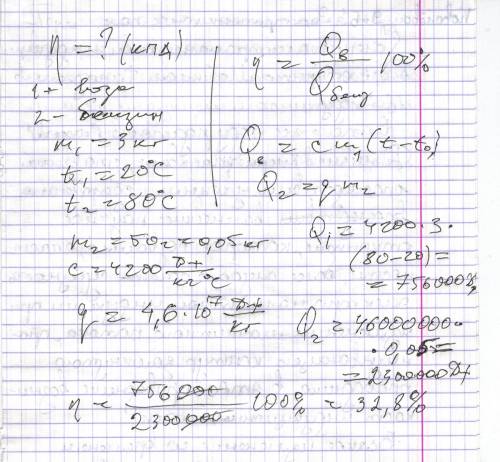 η = ? (кпд)
1 - вода
2 - бензин
m₁ = 3 кг
t₁ = 20°C
t₂ = 80°C
m₂ = 50г = 0,05 кг
c = 4200 Дж/кг°C
q = 4,6·10⁷ Дж/кг
η = Qв/Qбенз 100%
Qв = c m₁ (t - t₀)
Q₂ = q m₂
Q₁ = 4200·3·
(80-20) =
= 756000 Дж
Q₂ = 46000000·
·0,05 =
= 2300000 Дж
η = 756000/2300000 100% = 32,8%